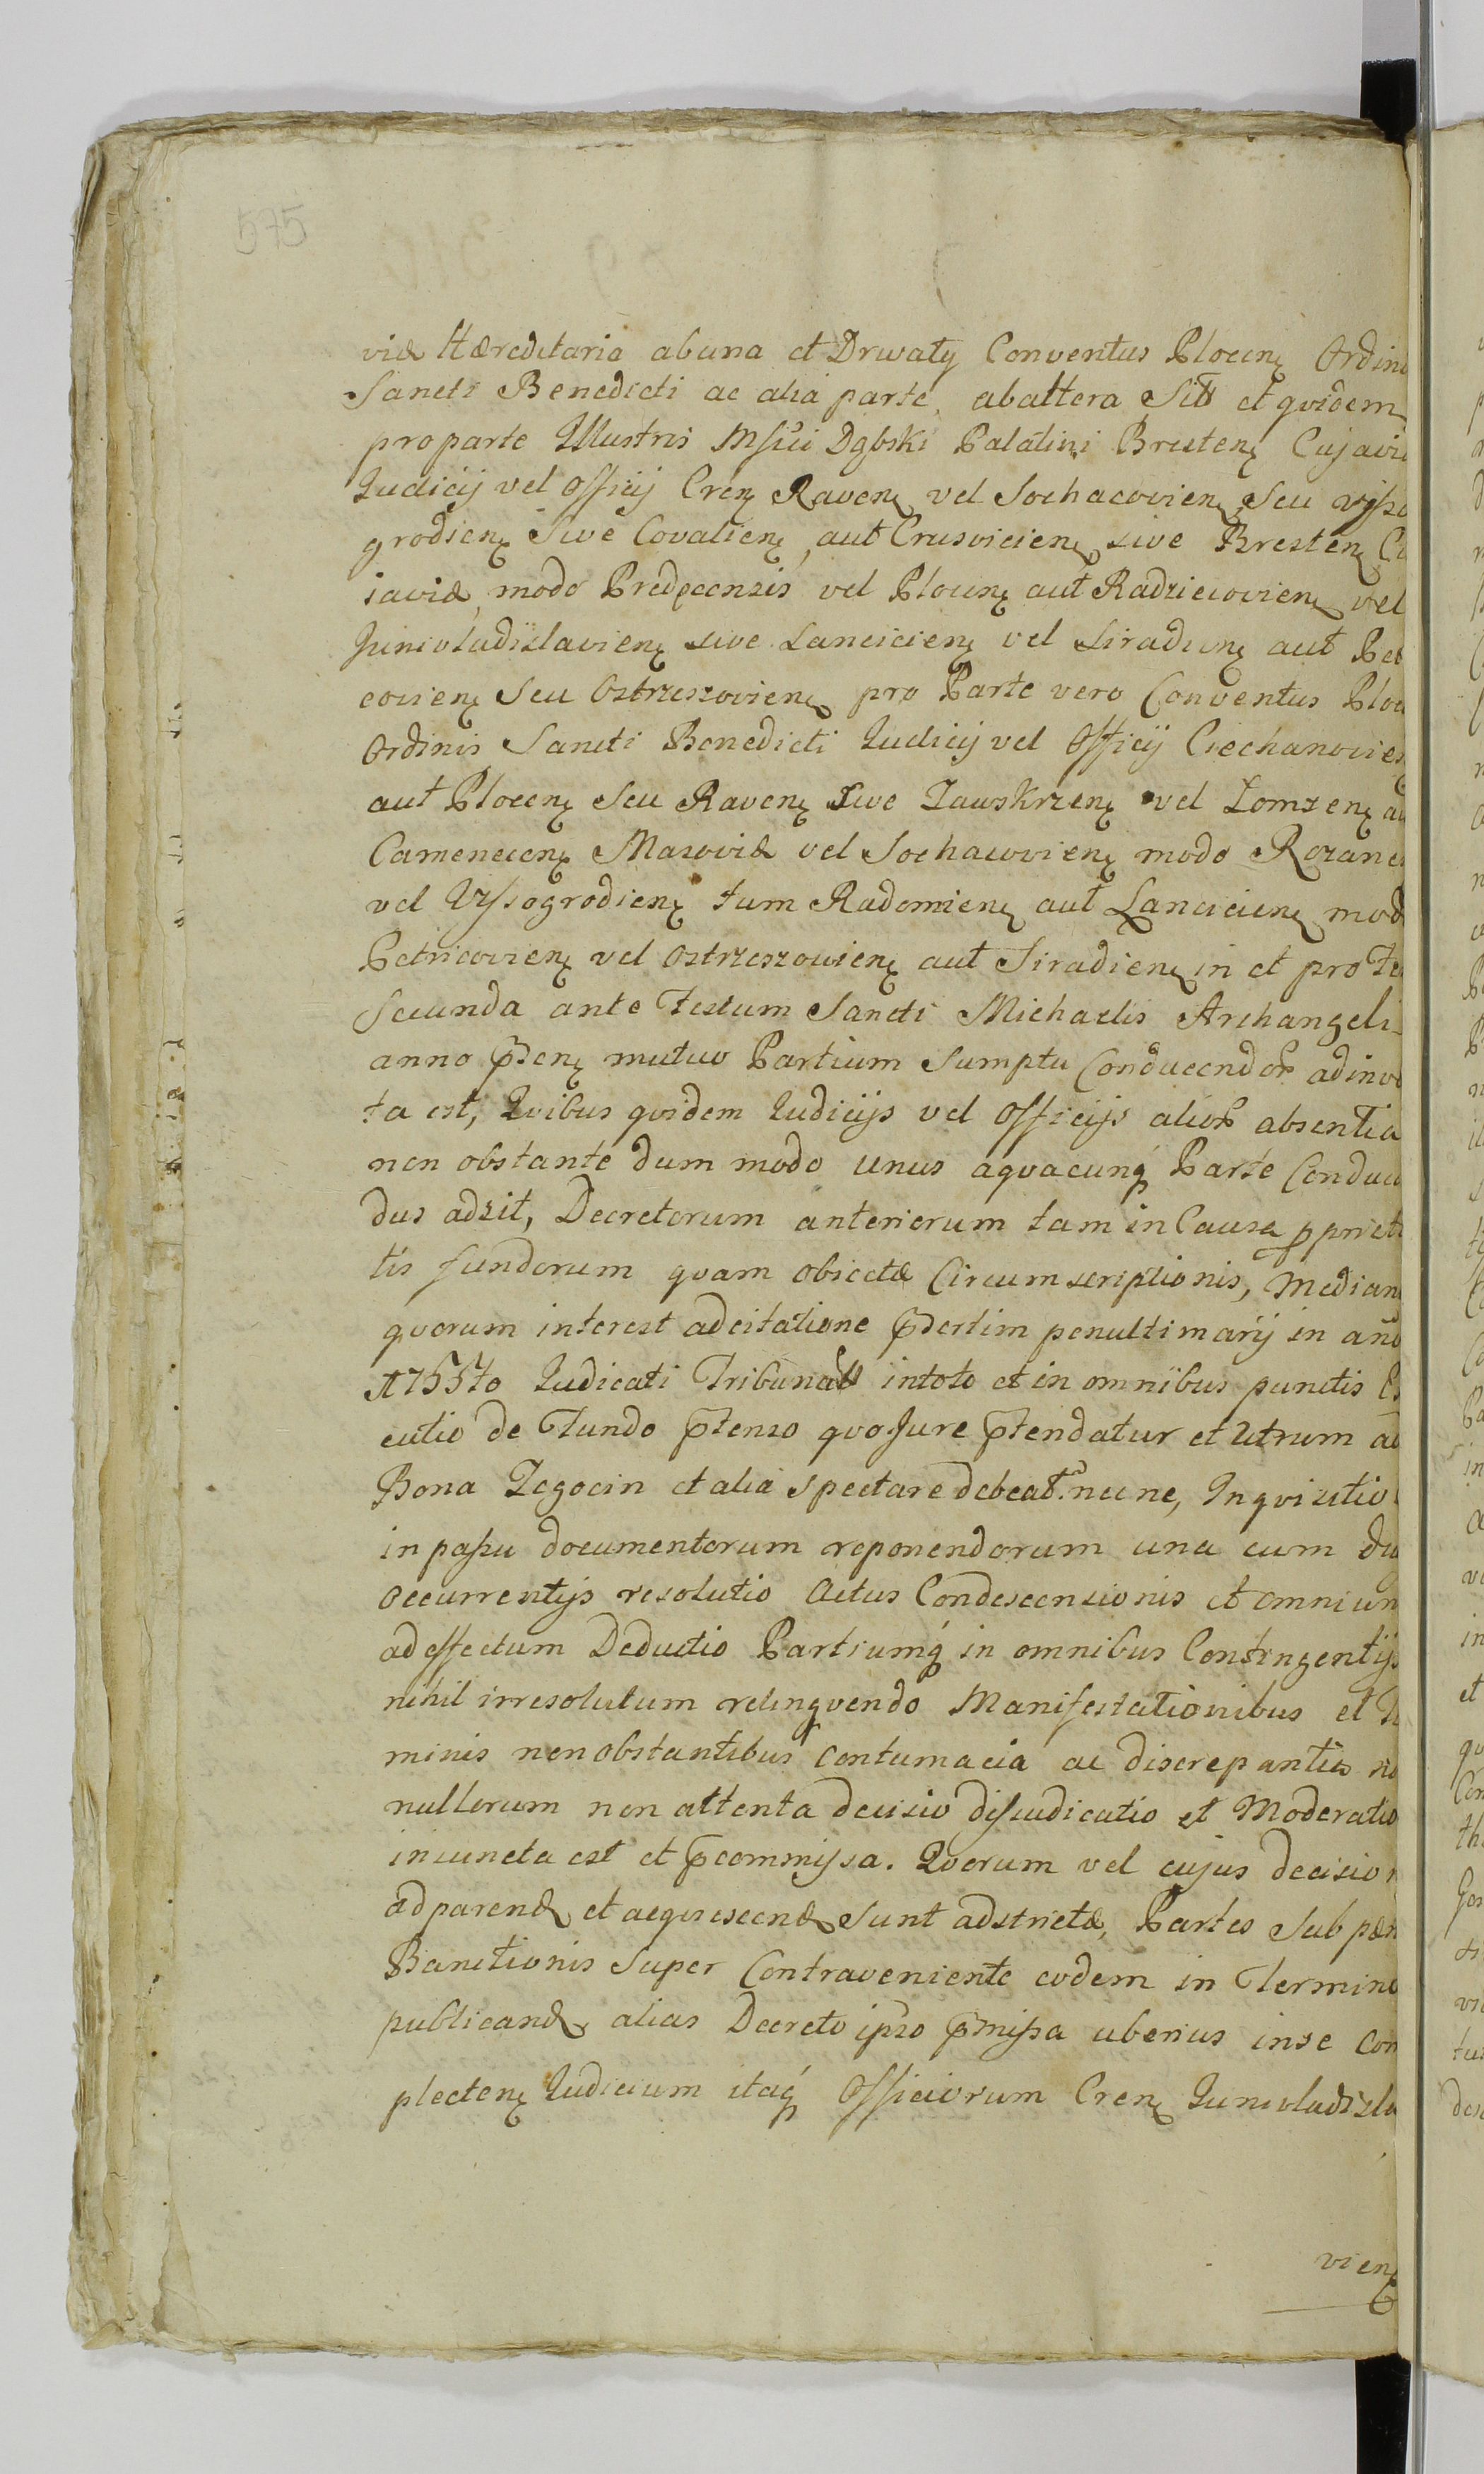 575
viæ Hæreditaria ab una et Drwały Conventus Plocen Ordini
Sancti Benedicti ac alia parte, ab altera Sitt et qvidem
pro parte Illustris Msści Dąbski Palatini Bresten Cujavi
Iudicij vel Officij Cren Raven vel Sochacovien, Seu vysso
grodien Sive Covalien, aut Crusvicien sive Bresten Cu
iaviæ, modo Predecensis vel Plocen aut Radziecovien vel
Junivladislavien sive Lancicien vel Siradien aut Pet
covien Seu Ostrzeszovien pro Parte vero Conventus Ploc
Ordinis Sancti Benedicti Iudicij vel Officij Ciechanovien
aut Plocen Seu Raven Sive Zawskrzen vel Lomzen au
Camenecen Masoviæ vel Sochacovien modo Rozane
vel Vyssogrodien tum Radomien aut Lancicien mod
Petricovien vel Ostrzeszowien aut Siradien in et pro Fe
secunda ante Festum Sancti Michaelis Archangeli
anno p̄sen mutuo Partium Sumptu Conducendor adinve
ta est, Qvibus qvidem Iudicijs vel Officijs alior absentia
non obstante dum modo unus aqvacunq Parte Conducen
dus adsit, Decretorum anteriorum tam in Causa ppriet
tis fundorum qvam obiectæ Circumscriptionis, Median
qvorum interest adcitatione p̄sertim penultimarij in ano
Iudicati Tribunali in toto et in omnibus punctis Ex
cutio de Fundo p̄tenso qvo Jure p̄tendatur et Utrum ad
Bona Zegocin et alia spectare debeat nec ne, Inqvisitio
in passu documentorum reponendorum una cum du
occurrentijs resolutio Actus Condescensionis et omnium
ad effectum Deductio Partiumq in omnibus Contingentijs
nihil irresolutum relinqvendo Manifestationibus et Te
minis non obstantibus contumacia ac discrepantia no
nullorum non attenta decisio disiudicatio et Moderatio
iniuncta est et p̄commissa. Qvorum vel cujus decision
adparend et acqviescend Sunt adstrictæ, Partes Sub pæn
Banitionis Super Contraveniente eodem in Termino
publicand, alias Decreto ipso p̄missa uberius in se Com
plecten Iudicium itaq Officiorum Cren Junivladisla
vien